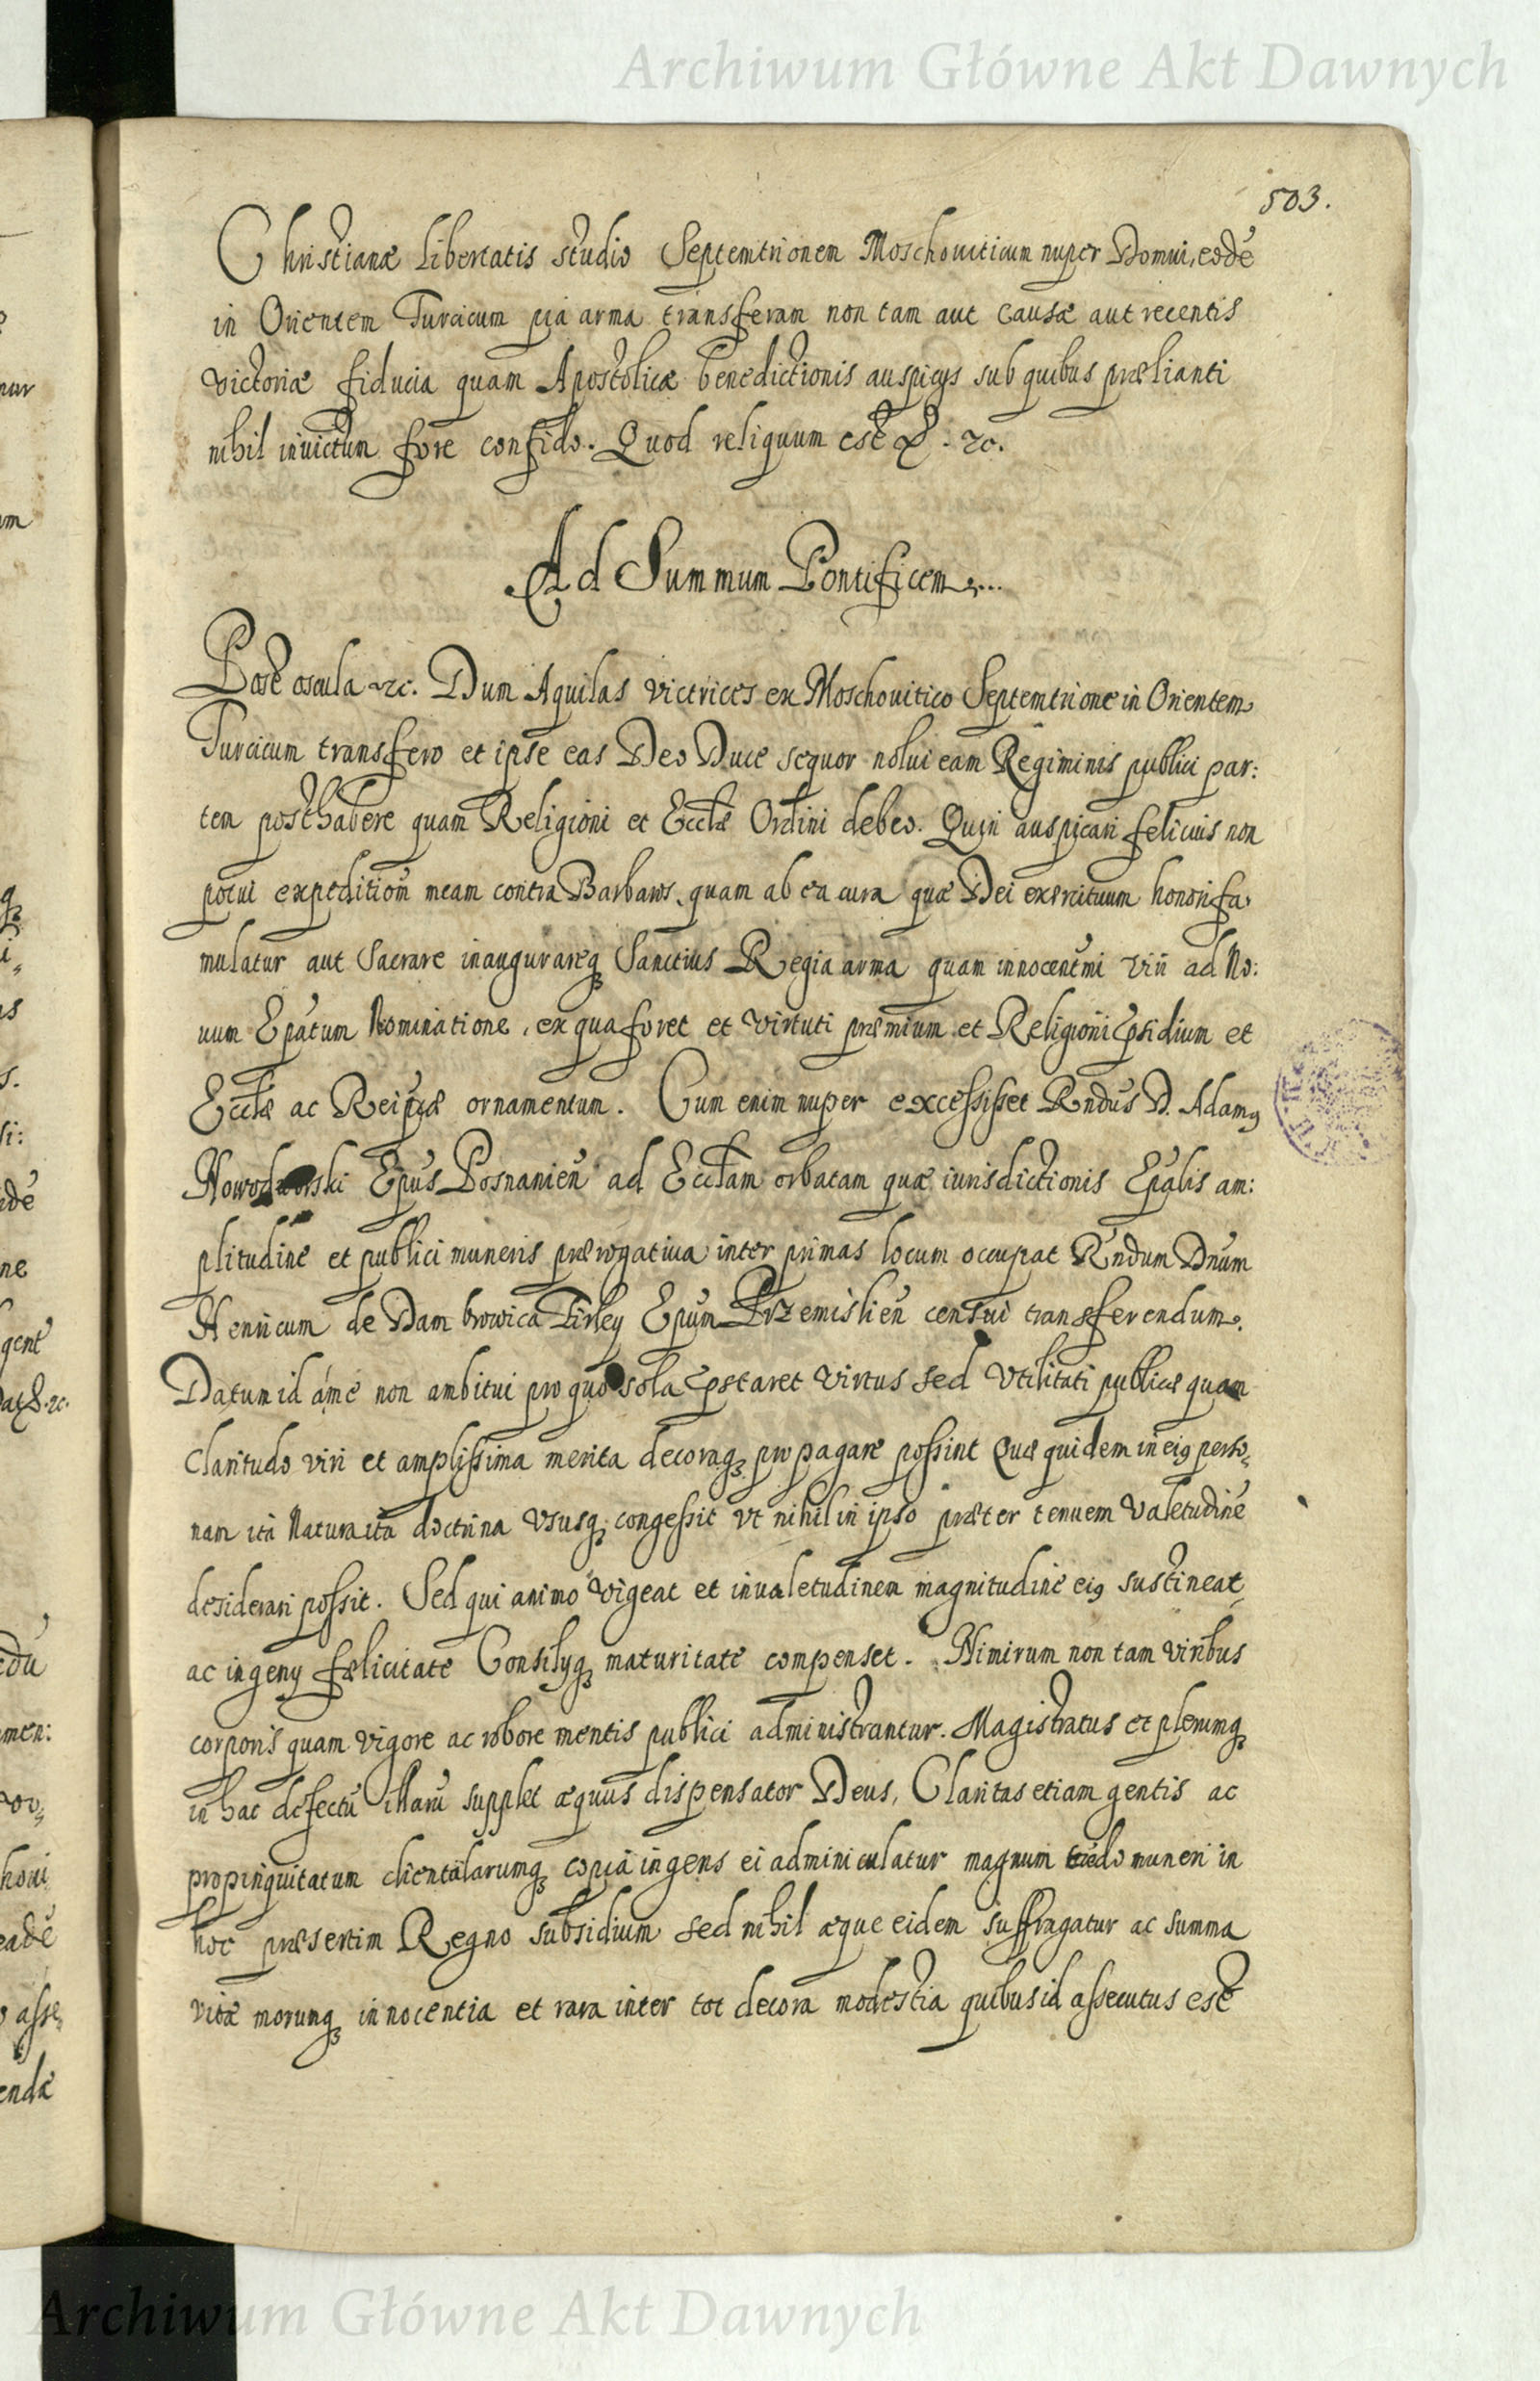 Archiwum Główne Akt Dawnych
503.
Christianæ Libertatis studio Septemtrionem Moschouiticum nuper Domui, eodē
in Orientem Turcicum pia arma transferam non tam aut causæ aut recentis
victoriæ fiducia quam Apostolicæ benedictionis auspicys sub quibus prælianti
nihil inuictum fore confido. Quod reliquum est &. rc.
Ad Summum Pontificem
Post oscula rc. Dum Aquilas victrices ex Moschouitico Septemtrione in Orientem
Turcicum transfero et ipse eas Deo Duce sequor nolui eam Regiminis publici par:
tem posthabere quam Religioni et Eccłæ Ordini debeo. Quin auspicari felicius non
potui expeditiom̄ meam contra Barbaros, quam ab ea cura quæ Dei exercituum honori fa:
mulatur aut Sacrare inaugurareq₃ Sanctius Regia arma quam innocentmi viri ad No:
uum Epātum Nominatione, ex qua foret et virtuti præmium et Religioni p̄sidium et
Eccłæ ac Reipcæ ornamentum. Cum enim nuper excessisset Rndus D. Adamꝯ
Nowodworski Epūs Posnanieñ ad Eccłam orbatam quæ iurisdictionis Epālis am:
plitudine et publici muneris prærogatiua inter primas locum occupat Rndum Dnum
Henricum de Dambrowica Firley Epūm Przemislieñ censui transferendum.
Datum id a me non ambitui pro quo sola p̄staret virtus sed Vtilitati publicæ quam
claritudo viri et amplissima merita decoraq₃ propagare possint Quæ quidem in eiꝯ perso„
nam ita Natura ita doctrina Vsusq₃ congessit vt nihil in ipso præter tenuem Valetudinē
desiderari possit. Sed qui animo vigeat et inualetudinem magnitudine eiꝯ sustineat,
ac ingeny fælicitate Consilyq₃ maturitate compenset. Nimirum non tam viribus
corporis quam vigore ac robore mentis publici administrantur. Magistratus et plerumq₃
in hac defectū illarū supplet æquus dispensator Deus, Claritas etiam gentis ac
propinquitatum clientelarumq₃ copia ingens ei adminiculatur magnum credo muneri in
hoc præsertim Regno subsidium sed nihil æque eidem suffragatur ac summa
vitæ morumq₃ innocentia et rara inter tot decora modestia quibus id assecutus est
Archiwum Główne Akt Dawnych